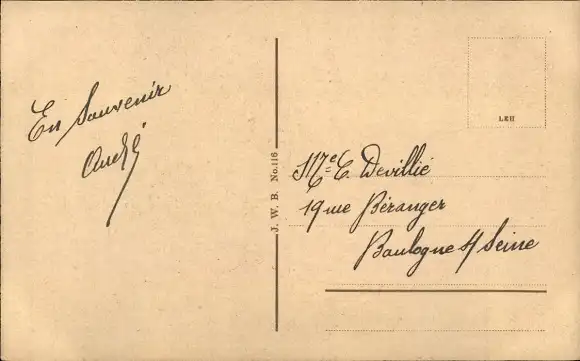 En Souvenir
André
J. W. B. No. 116
LEH
Mᵉ C. Devillié
19 rue Béranger
Boulogne s/ Seine